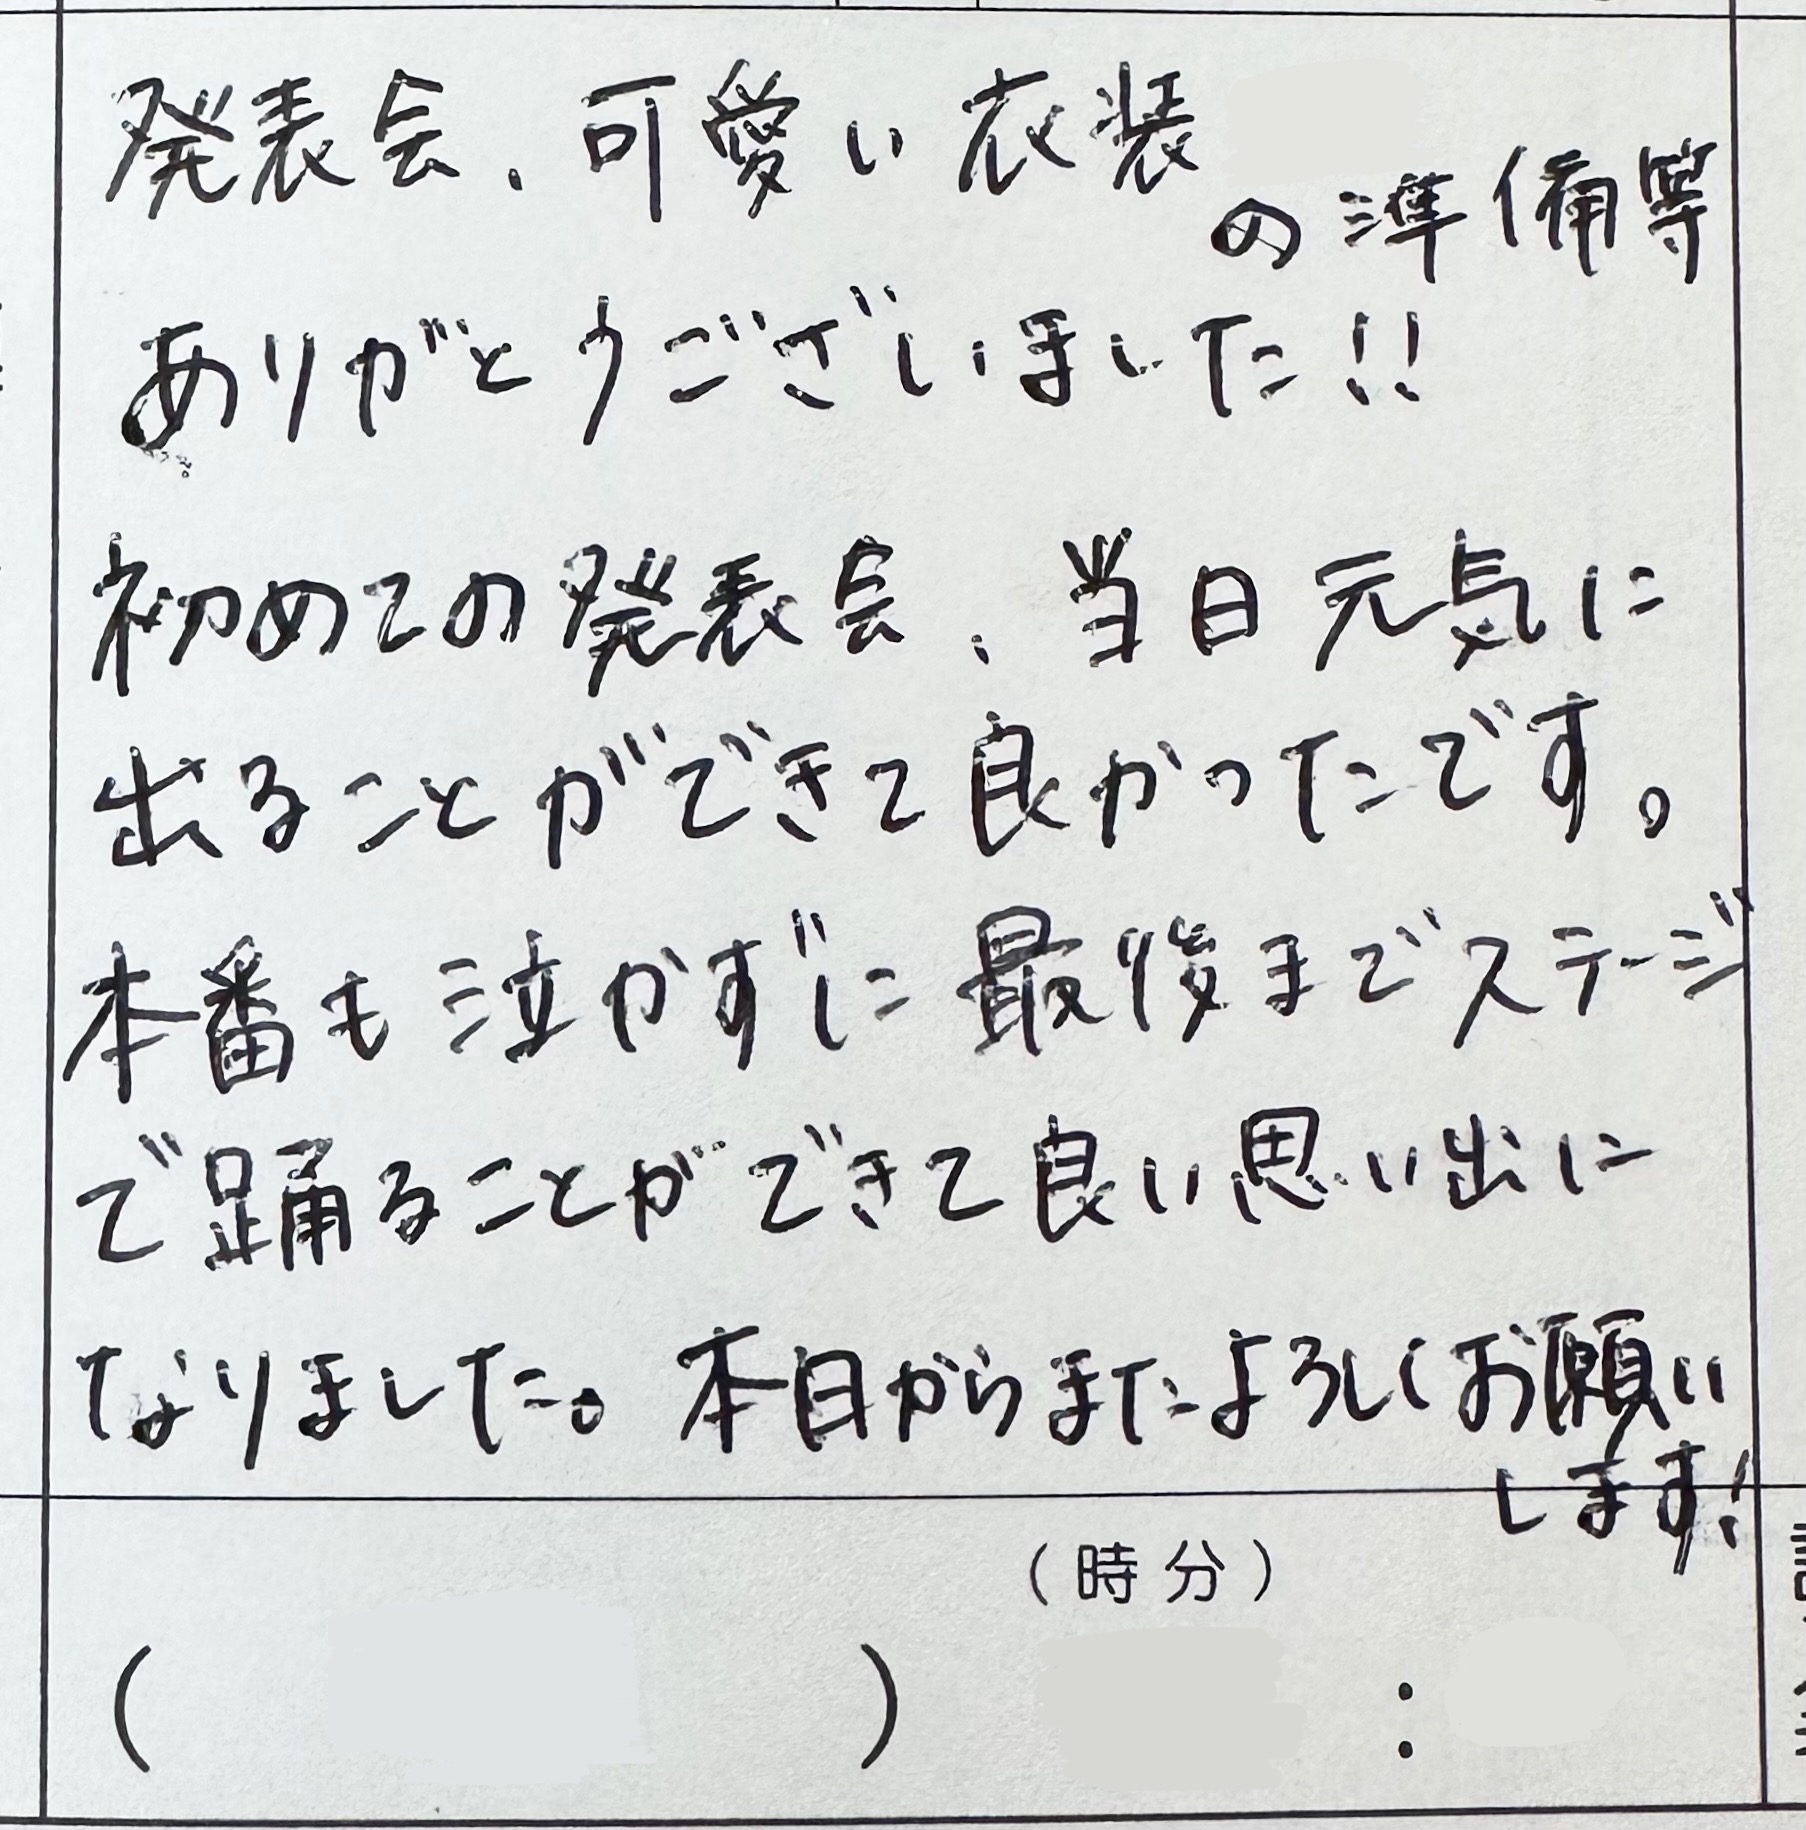 発表会、可愛い衣装の準備等
ありがとうございました!!
初めての発表会、当日元気に
出ることができて良かったです。
本番も泣かずに最後までステージ
で踊ることができて良い思い出に
なりました。本日からまたよろしくお願い
します!
(時分)
( ) :